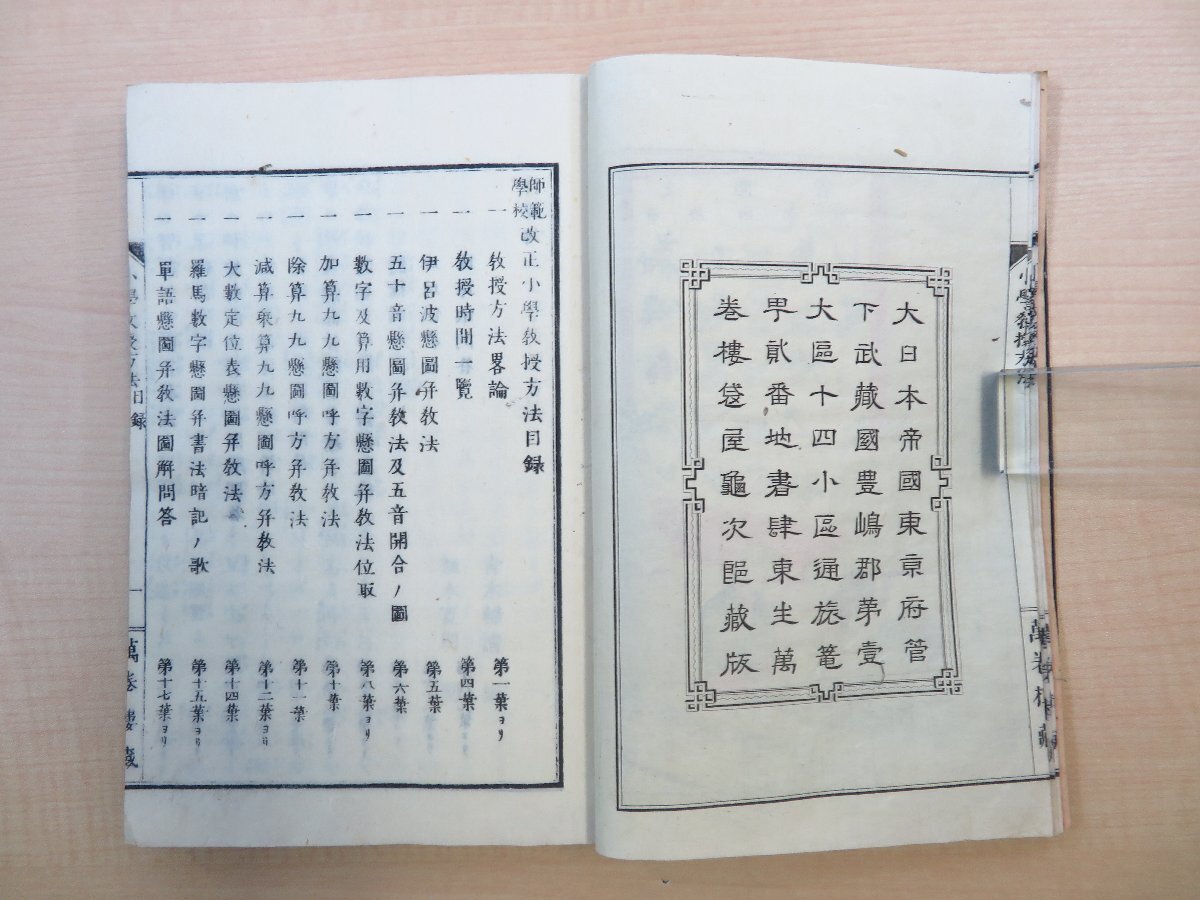 大日本帝國東亰府管
下武藏國豊嶋郡苐壹
大區十四小區通旅篭
甼貳番地書肆東生萬
卷樓袋屋龜次郎藏版
小學教授方法
萬卷樓藏
師範學校改正小學敎授方法目録
一 敎授方法畧論 第一葉ヨリ
一 敎授時間一覽 第四葉
一 伊呂波懸圖并敎法 第五葉
一 五十音懸圖并敎法及五音開合ノ圖 第六葉
一 數字及算用數字懸圖并敎法位取 第八葉ヨリ
一 加算九九懸圖呼方并敎法 第十葉
一 除算九九懸圖呼方并敎法 第十一葉
一 減算乘算九九懸圖呼方并敎法 第十二葉ヨリ
一 大數定位表懸圖并敎法 第十四葉
一 羅馬數字懸圖并書法暗記ノ歌 第十五葉ヨリ
一 單語懸圖并敎法圖解問答 第十七葉ヨリ
小學敎授方法目録 一 萬卷樓藏